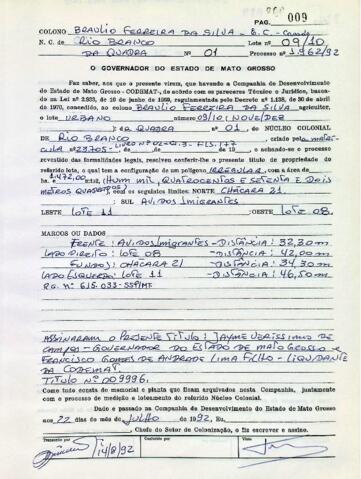 PAG. 009
COLONO BRAULIO FERREIRA DA SILVA - B.C.
N. C. de RIO BRANCO Lote nº 09/10
DA QUADRA Nº 01 Processo nº 1.962/92
O GOVERNADOR DO ESTADO DE MATO GROSSO
Faz saber, aos que a presente virem, que havendo a Companhia de Desenvolvimento
do Estado de Mato Grosso - CODEMAT-, de acordo com os pareceres Técnico e Jurídico, baseada
na Lei nº 2.933, de 10 de junho de 1969, regulamentada pelo Decreto nº 1.138, de 30 de abril
de 1970, concedido, ao colono BRAULIO FERREIRA DA SILVA agricultor,
o lote URBANO nº 09/10 (NOVE/DEZ
) DA QUADRA nº 01. NÚCLEO COLONIAL
DE RIO BRANCO, criado pela MATRI-
CULA nº 23705- LIVRO Nº 02-G.3-FLS. 177 de 19 , e achando-se o processo
revestido das formalidades legais, resolveu conferir-lhe o presente título de propriedade do
referido lote, o qual tem a configuração de um polígono IRREGULAR, com a área de
1.472,00 m² (HUM MIL, QUATROCENTOS E SETENTA E DOIS
METROS QUADRADOS), com os seguintes limites: NORTE CHÁCARA 21.
SUL AV. DOS IMIGRANTES
LESTE LOTE 11 OESTE LOTE 08.
MARCOS OU DADOS
FRENTE: AV. DOS IMIGRANTES - DISTÂNCIA: 32,30 m
LADO DIREITO: LOTE 08 - DISTÂNCIA: 42,00 m
FUNDOS: CHÁCARA 21 - DISTÂNCIA: 34,30 m
LADO ESQUERDO: LOTE 11 - DISTÂNCIA: 46,50 m
RG. Nº 615.033-SSP/MT
ASSINARAM O PRESENTE TÍTULO: JAYME VERISSIMO DE
CAMPOS - GOVERNADOR DO ESTADO DE MATO GROSSO E
FRANCISCO GOMES DE ANDRADE LIMA FILHO - LIQUIDANTE
DA CODEMAT.
TITULO Nº 009996.
Como tudo consta do memorial e planta que ficam arquivados nesta Companhia, juntamente
com o processo de medição e loteamento do referido Núcleo Colonial.
Dado e passado na Companhia de Desenvolvimento do Estado de Mato Grosso
aos 22 dias do mês de JULHO de 1992, Eu,
, Chefe do Setor de Colonização, o fiz escrever e assino.
Transcrito por Conferido por Visto
14/8/92